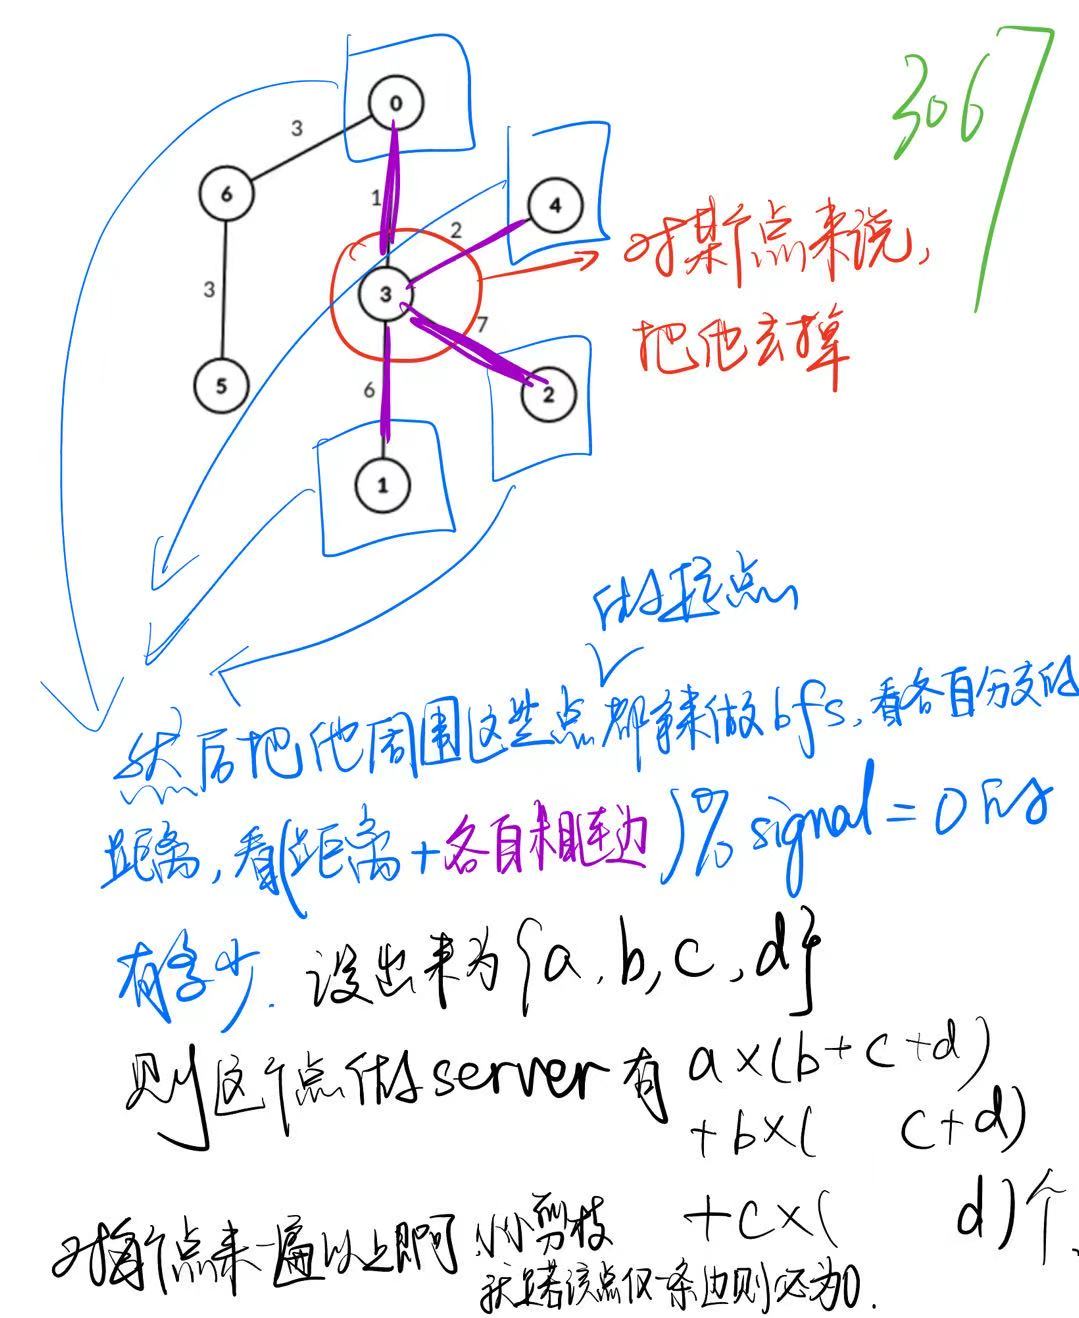 3067
0
3
1
6
4
2
3
3
7
5
6
2
1
对某个点来说,
把他去掉
做起点
然后把他周围这些点都拿来做bfs,看各自分支的
距离,看(距离+各自相连边)%signal=0的
有多少. 设出来为{a,b,c,d}
则这个点做server有 a×(b+c+d)
+b×( c+d)
+c×( d)个.
对每个点来一遍以上即可 小小剪枝
就是若该点仅一条边则必为0.